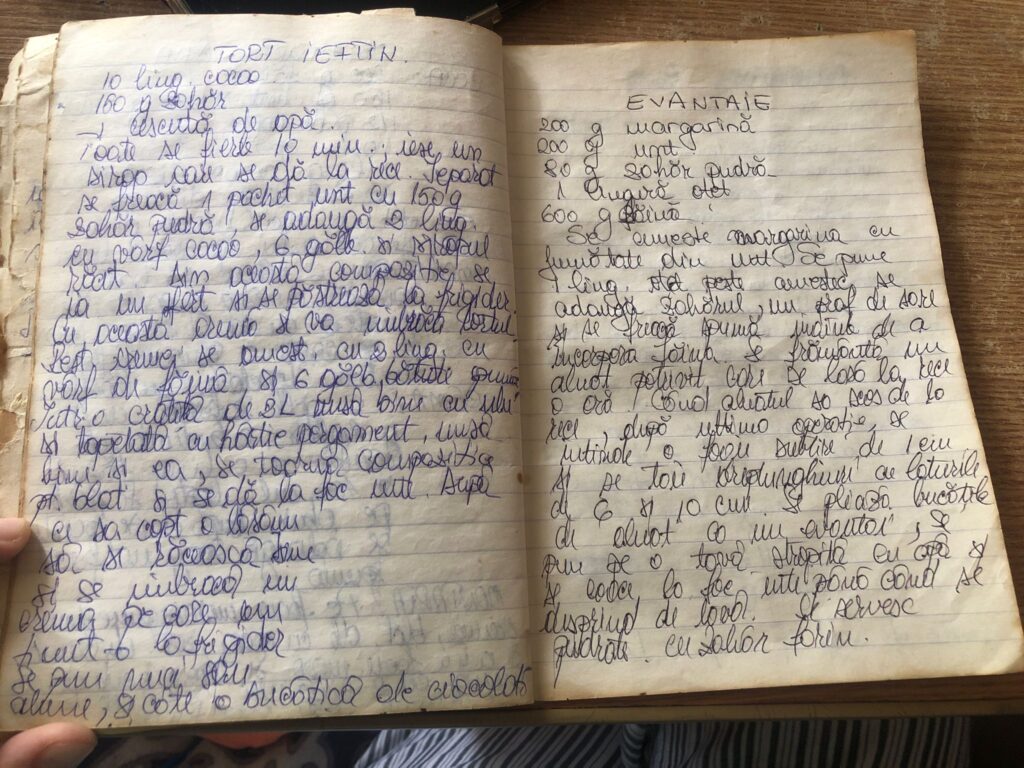 TORT IEFTIN.
10 ling. cocoo
160 g zohăr
1 cescută de apă.
Toate se fierb 10 min.; iese un
sirop care se dă la rece. Separat
se freacă 1 pachet unt cu 150g
zohăr pudră, se adaugă 2 ling.
cu vârf cocoo, 6 gălb. si siropul
răcit. Din aceasta compozitie se
ia un sfert si se păstrează la frigider.
Cu aceasta crema se va imbrăca tortul.
Rest crema se amest. cu 2 ling. cu
vârf de făină si 6 gălb. bătute spumă
Intr-o cratită de 3L unsă bine cu unt
si tapetată cu hârtie pergament, unsă
bine si ea, se toarnă compozitia
pt. blat si se dă la foc mic. După
ce s-a copt o lăsăm
să si răcească bine
si se imbracă cu
crema pe care am
tinut-o la frigider
Se pun nuci, sau
alune, si câte o bucătică de ciocolată
EVANTAJE
200 g margarină
200 g unt
80 g zohăr pudră
1 lingură otet
600 g făină
Se amestecă margarina cu
jumătate din unt. Se pune
1 ling. otet peste amestec se
adaugă zohărul, un praf de sare
si se freacă spumă inainte de a
incorpora făina se frământă un
aluat potrivit care se lasă la rece
o oră. Când aluatul s-a scos de la
rece, după ultima operatie, se
intinde o foaie subtire de 1 cm
si se taie dreptunghiuri cu laturile
de 6 si 10 cm. Se pliază bucătile
de aluat ca un evantai, se
pun pe o tavă stropită cu apă si
se coace la foc iute până când se
desprind de tavă. Se servesc
pudrate cu zahăr farin.